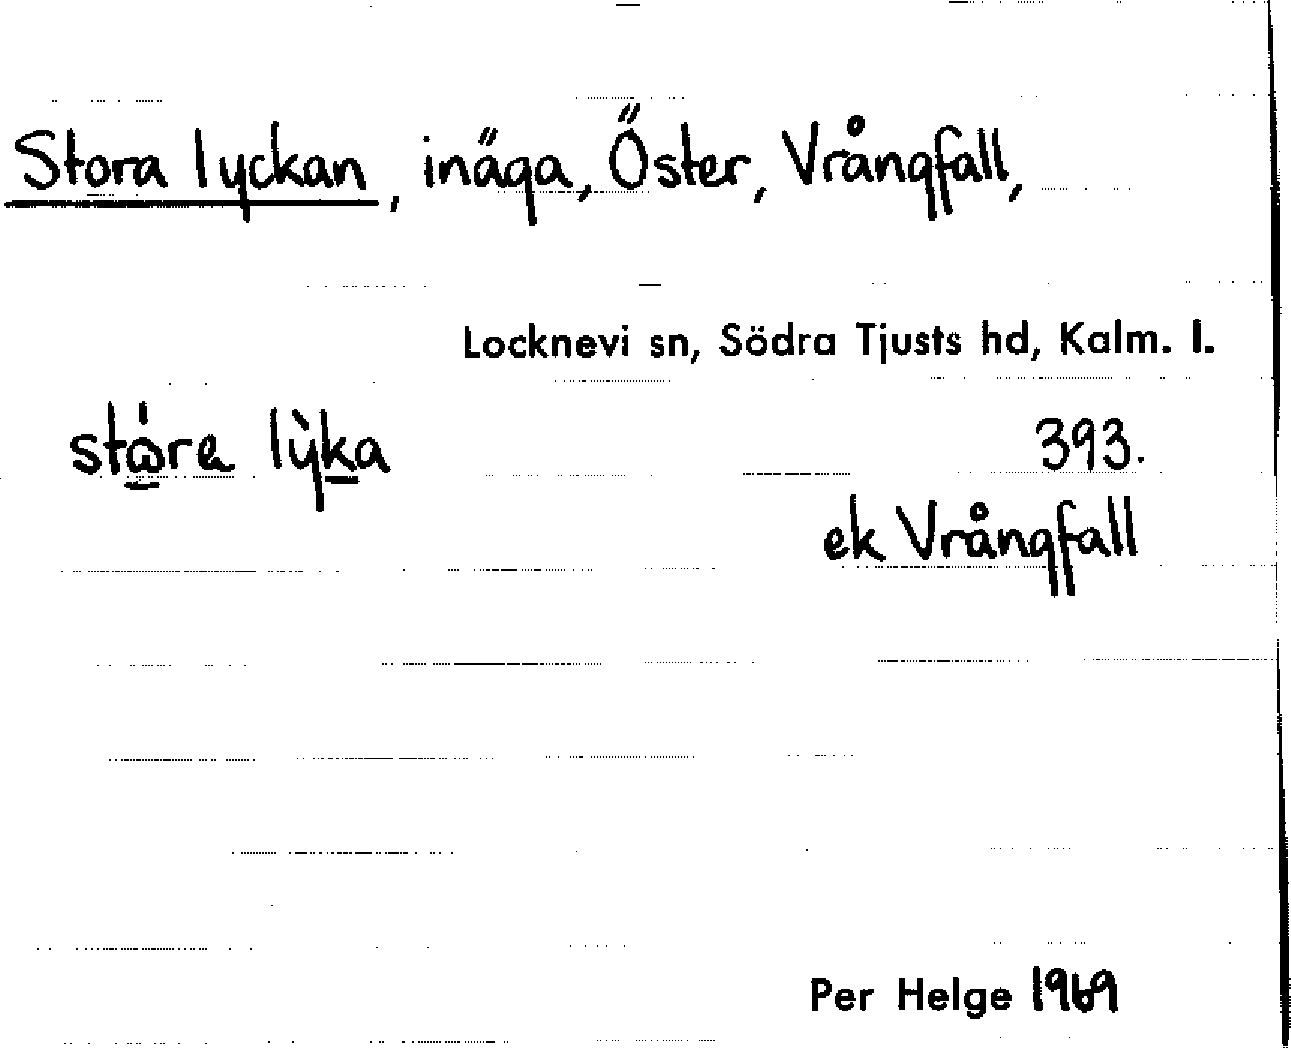 Stora lyckan, inäga, Öster, Vrångfall,
Locknevi sn, Södra Tjusts hd, Kalm. l.
393.
ek Vrångfall
Per Helge 1969